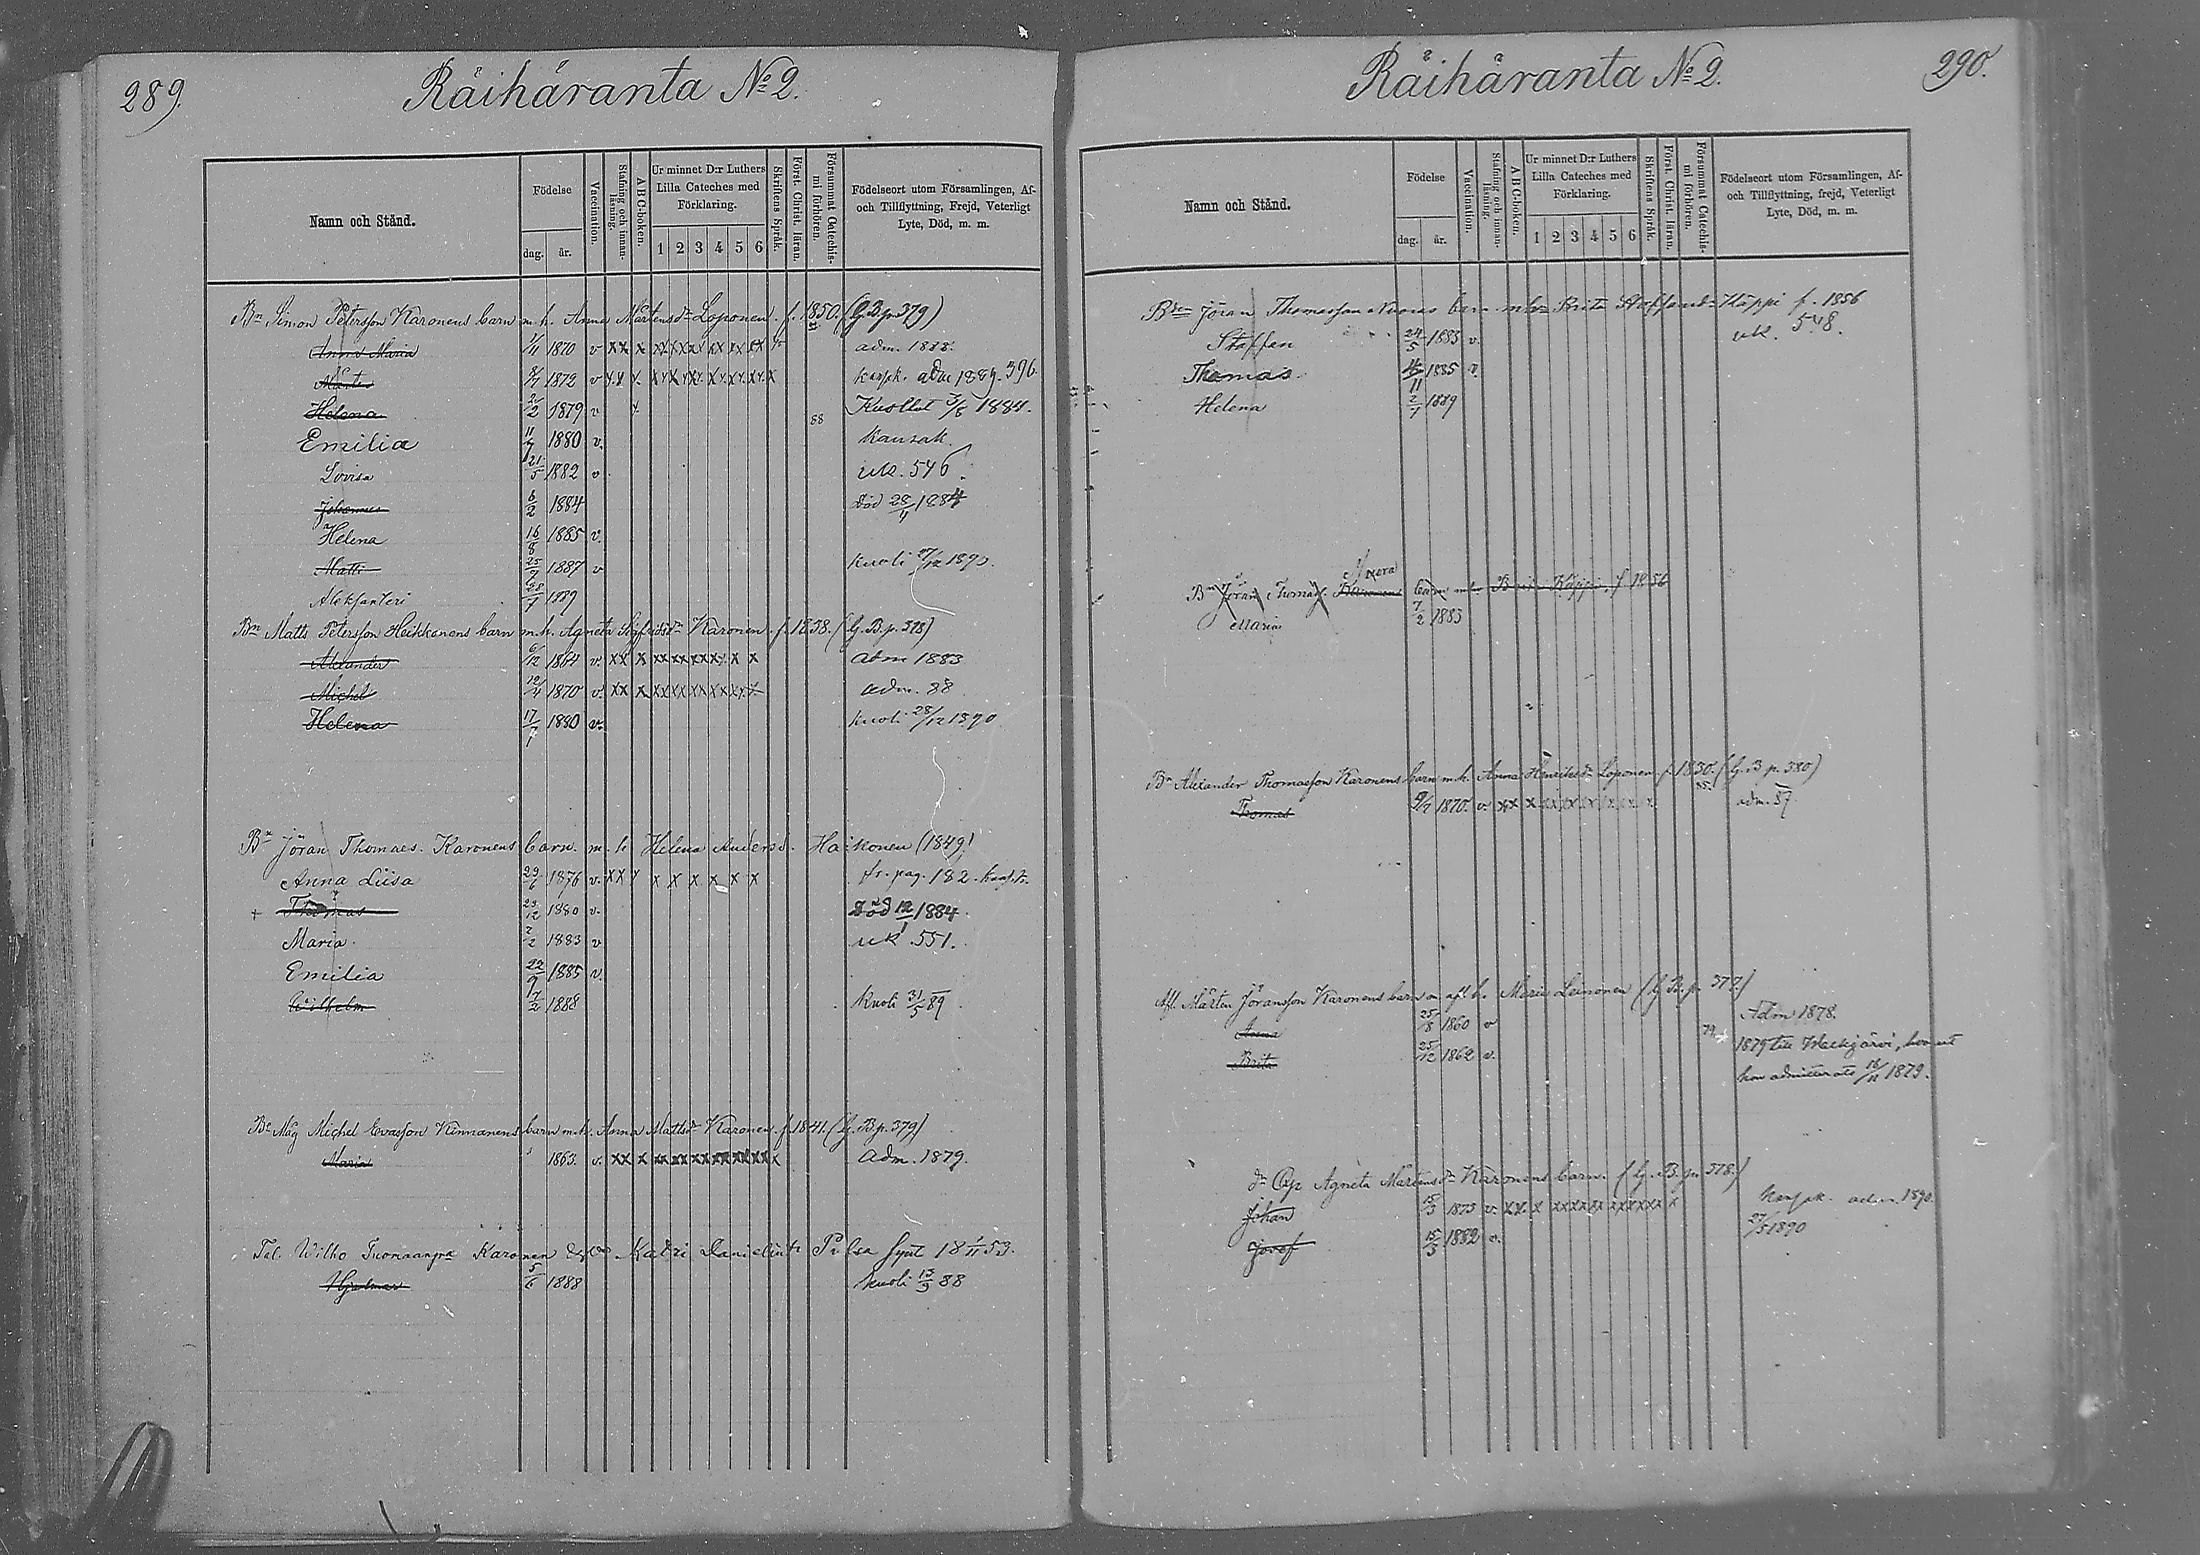 289.
Räihäranta No 2.
Namn och Stånd.
Födelse
dag.
år.
Vaccination.
Stafning och innanläsning.
A B C-boken.
Ur minnet D:r Luthers
Lilla Cateches med
Förklaring.
1 2 3 4 5 6
Skriftens Språk.
Först. Christ. läran.
Försummat Catechismi förhören.
Födelseort utom Församlingen, Af-
och Tillflyttning, Frejd, Veterligt
Lyte, Död, m. m.
Bn Simon Petersson Karonens barn m. h. Anna Mårtensdr Loponen f. 1850. (G. B. p. 379)
Anna Maria 1870 v xx x xx xx xx xx xx xx adm. 1888.
Mårten 1872 v adm 1889. 396
Helena 1879 v 1884.
88
Emilia 11/7 1880 v. kansak.
Lovisa 21/5 1882 v uk. 546.
Johannes 6/2 1884 död 28/4 1884
Helena 16/8 1885 v.
Matti 25/7 1887 v kuoli 27/12 1890.
Aleksanteri 28/7 1889
Bn Matts Petersson Heikkonens barn m. h. Agneta Sigfridsdr Karonen f. 1838. (G. B. p. 378)
Alexander 6/12 1864 v. xx x xx xx xx xx x x adm 1883
Michel 12/4 1870 v. xx x xx xx xx xx xx x adm. 88
Helena 17/1 1880 v. kuoli 28/12 1890
Bn Jöran Thomass. Karonens barn m. h Helena Andersd. Haikonen (1849)
Anna Liisa 29/6 1876 v. xx x x x x x x x fr. pag. 182.
+ Thomas 23/12 1880 v. Död 12/1 1884.
Maria. 2/2 1883 v uk 551.
Emilia 22/9 1885 v.
Wilhelm 17/2 1888 kuoli 31/5 89.
Bn Måg Michel Evasson Kinnanens barn m. h. Anna Mattsdr Karonen f. 1841. (G. B. p. 379)
Maria 1863. v. xx x xx xx xx xx xx xx x Adm. 1879.
Tal. Wilho Tuomaanpn Karonen Katri Danielint. Pulsa synt 18 1/11 53.
Hjalmar 5/6 1888 kuoli 13/9 88
290.
Räihäranta No 2.
Namn och Stånd.
Födelse
dag.
år.
Vaccination.
Stafning och innanläsning.
A B C-boken.
Ur minnet D:r Luthers
Lilla Cateches med
Förklaring.
1 2 3 4 5 6
Skriftens Språk.
Först. Christ. läran.
Försummat Catechismi förhören.
Födelseort utom Församlingen, Af-
och Tillflyttning, frejd, Veterligt
Lyte, Död, m. m.
Jöran Thomasson barn Brita Staffansdr Käppi f. 1856
Staffan 24/5 1883 v. uk. 548.
Thomas 1885 v.
Helena 2/1 1889
Bn Jöran Thomass. Karonens barn Käppi, f 1856
Maria 7/2 1883
Bn Alexander Thomasson Karonens barn m. h. Anna Henriksdr Loponen f. 1830. (G. B p. 380)
85.
Thomas 9/7 1870. v. xx x xx xx xx xx xx xx adm. 87.
Afl. Mårten Jöransson Karonens barn m. afl. h. Maria Leinonen (G. B. p. 377)
Anna 25/8 1860 v Adm 1878.
Brita 25/12 1862 v. 79. 1879 till Walkjärvi, hvarest
hon admitterats 1879.
Agneta Mårtensdr Karonens barn. (G. B. p. 378.)
Johan 1875 v. xx x xx xx xx xx xx xx x adm. 1890.
Josef 15/3 1882 v. 27/5 1890